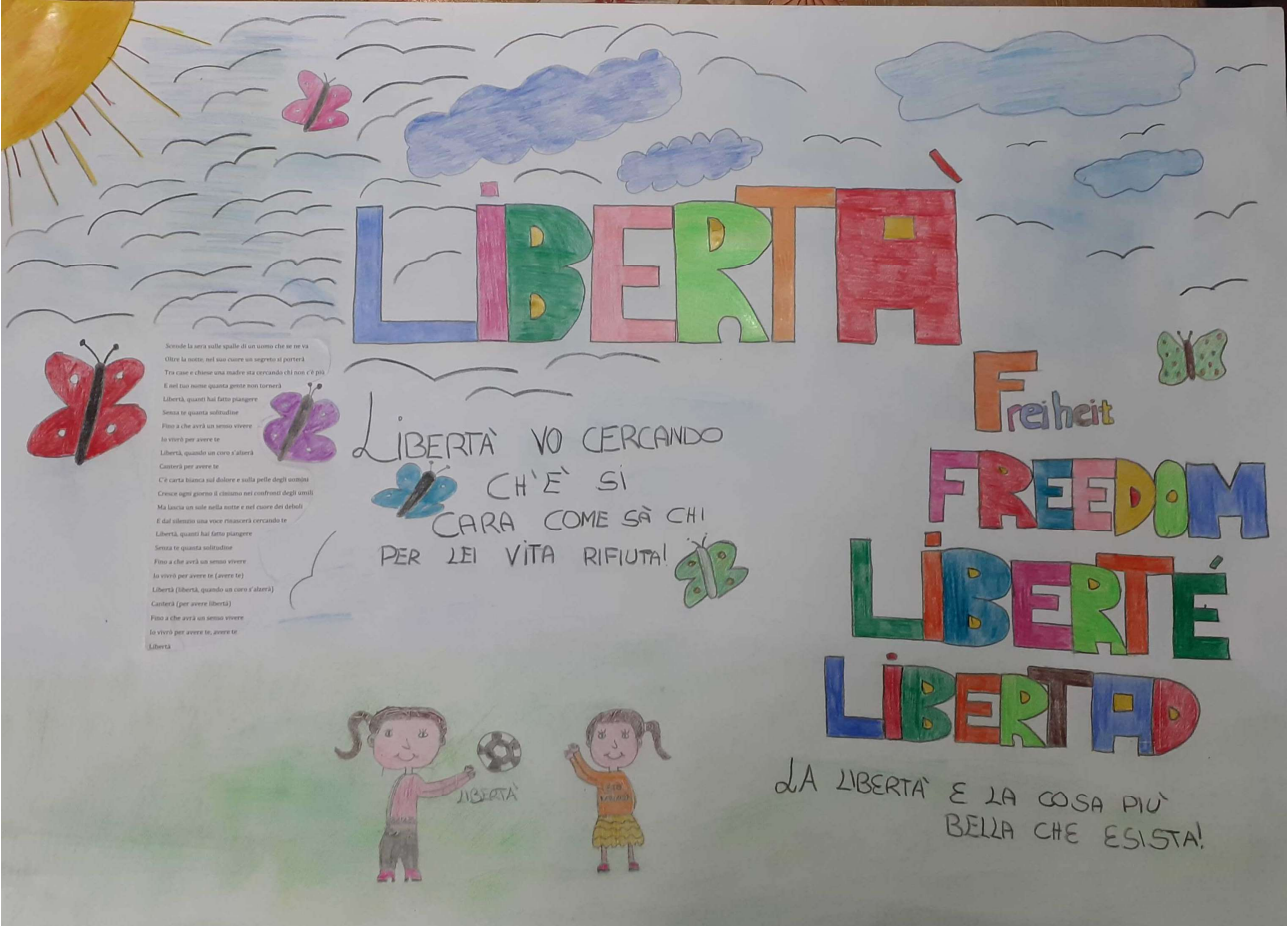 LIBERTÀ
Scende la sera sulle spalle di un uomo che se ne va
Oltre la notte, nel suo cuore un segreto si porterà
Tra case e chiese una madre sta cercando chi non c'è più
E nel tuo nome quanta gente non tornerà
Libertà, quanti hai fatto piangere
Senza te quanta solitudine
Fino a che avrà un senso vivere
Io vivrò per avere te
Libertà, quando un coro s'alzerà
Canterà per avere te
C'è carta bianca sul dolore e sulla pelle degli uomini
Cresce ogni giorno il cinismo nei confronti degli umili
Ma lancia un sole nella notte e nel cuore dei deboli
E dal silenzio una voce rinascerà cercando te
Libertà, quanti hai fatto piangere
Senza te quanta solitudine
Fino a che avrà un senso vivere
Io vivrò per avere te (avere te)
Libertà (libertà, quando un coro s'alzerà)
Canterà (per avere libertà)
Fino a che avrà un senso vivere
Io vivrò per avere te, avere te
Libertà
LIBERTÀ VO CERCANDO
CH'È SI
CARA COME SÀ CHI
PER LEI VITA RIFIUTA!
Freiheit
FREEDOM
LIBERTÉ
LIBERTAD
LIBERTÀ
LA LIBERTÀ E LA COSA PIÙ
BELLA CHE ESISTA!